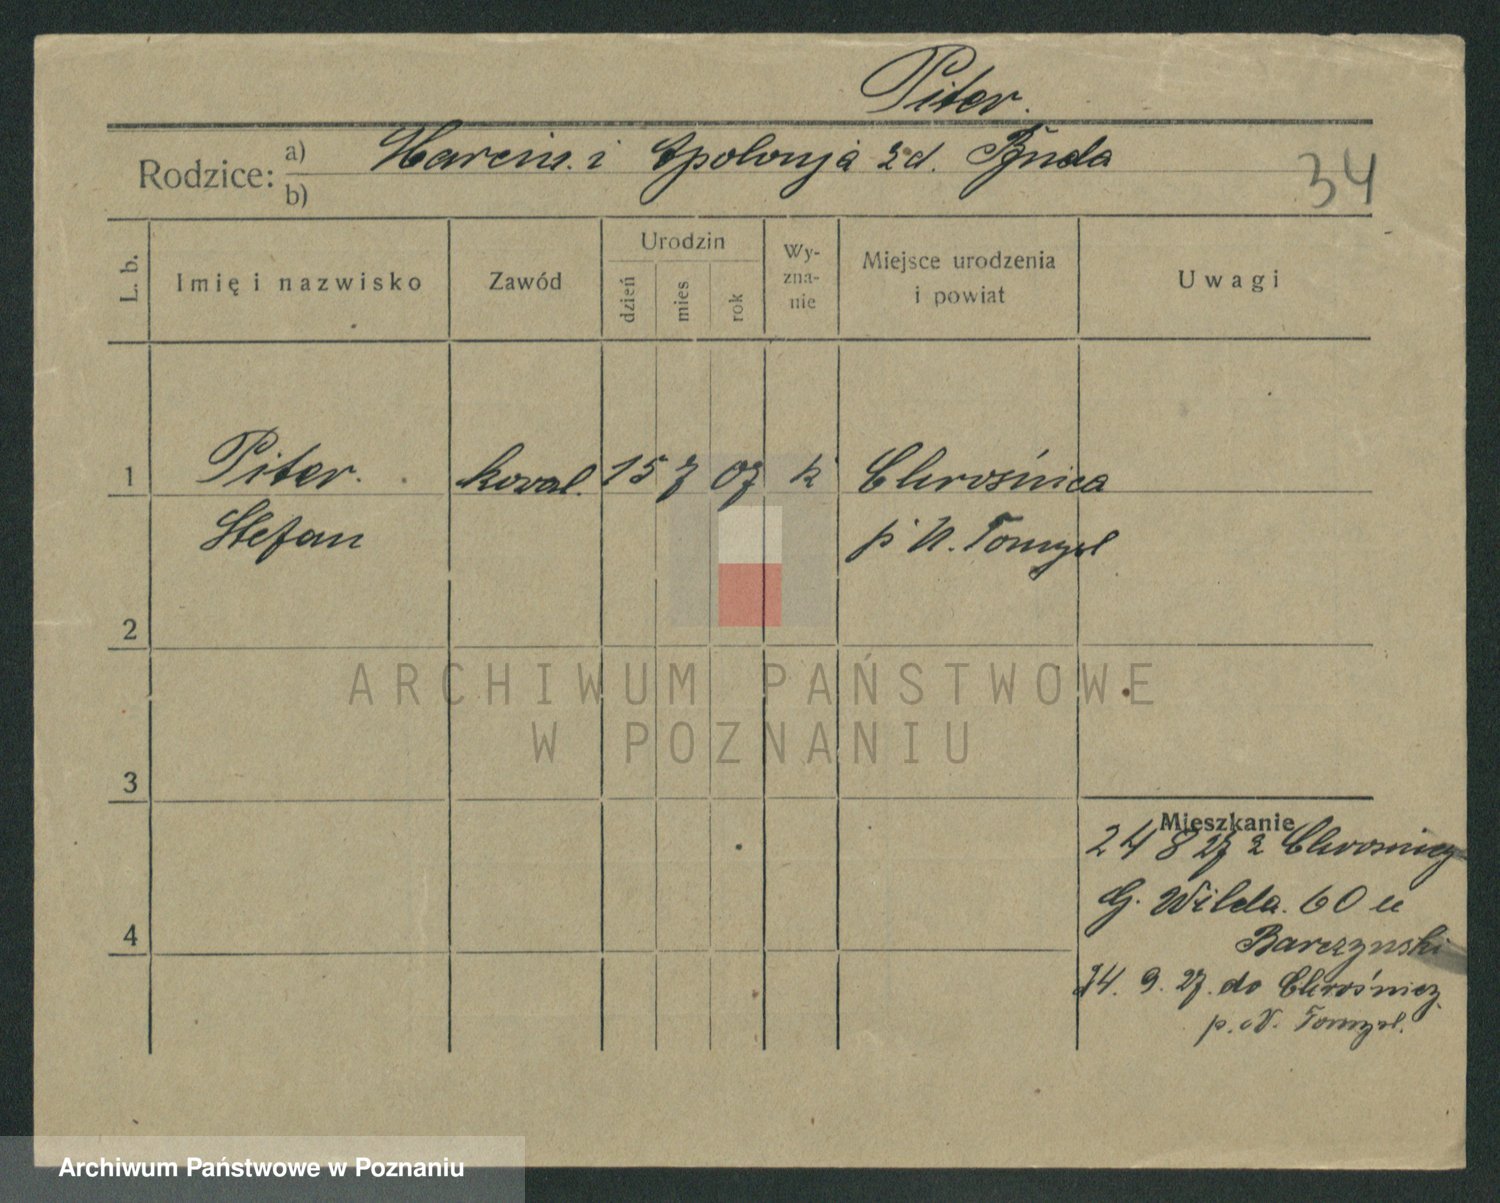 Piter.
Rodzice: a) Marcin. i Apolonja zd. Bzuda
b)
34
L. b.
Imię i nazwisko
Zawód
Urodzin
dzień
mies
rok
Wy-
zna-
nie
Miejsce urodzenia
i powiat
Uwagi
1 Piter. kowal. 15 7 07 k Chrośnica
Stefan p N. Tomyśl
2
ARCHIWUM PAŃSTWOWE
W POZNANIU
3
Mieszkanie
24 8 27 z Chrośnicy
G. Wilda. 60 u
Barczynski
14. 9. 27. do Chrośnicy.
p. N. Tomyśl.
4
Archiwum Państwowe w Poznaniu